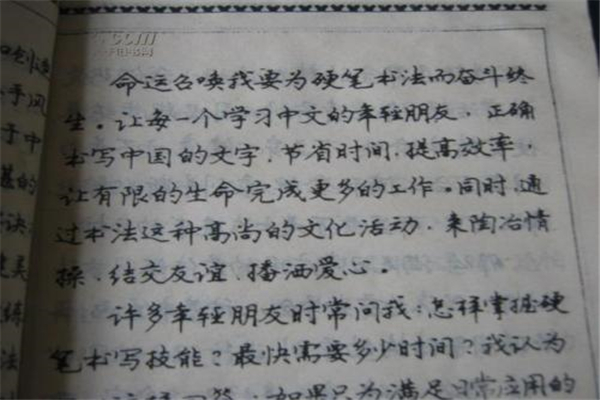 命运召唤我要为硬笔书法而奋斗终
生。让每一个学习中文的年轻朋友，正确
书写中国的文字，节省时间，提高效率，
让有限的生命完成更多的工作。同时，通
过书法这种高尚的文化活动，来陶冶情
操、结交友谊、播洒爱心。
许多年轻朋友时常问我：怎样掌握硬
笔书写技能？最快需要多少时间？我认为
如果只为满足日常应用的